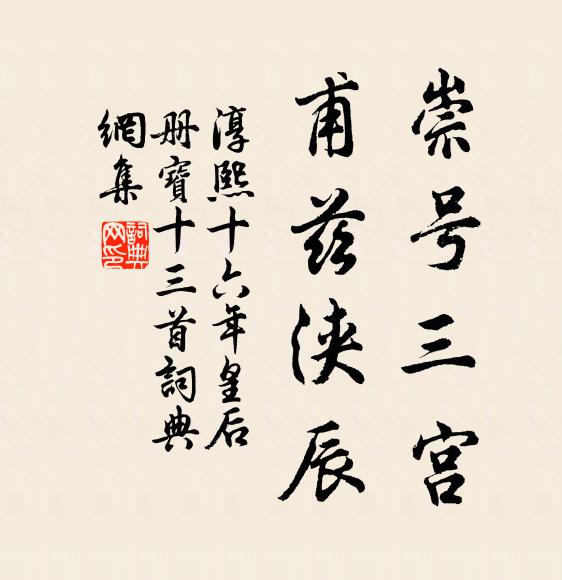 崇号三宫
甫兹浃辰
淳熙十六年皇后
册寶十三首詞典
網集
詞典
网印